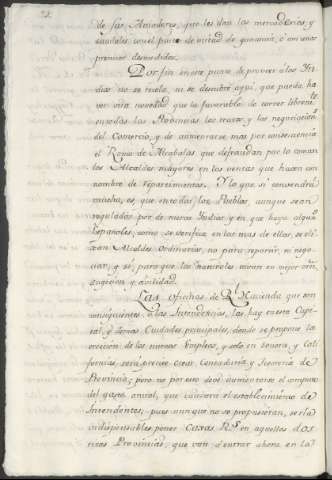 de sus Aviadores, que les dan las mercaderias, y
caudales con el pacto de mitad de ganancia, ò con unos
premios desmedidos.
Por fin en este punto de proveer à los Yn-
dios no se trata, ni se descubre aqui, que pueda ha-
ver otra novedad que la favorable de correr libremte.
en todas las Provincias los tratos, y las negociacion.s
del Comercio, y de aumentarse mas por consequencia
el Ramo de Alcabalas que defraudan por lo comun
los Alcaldes mayores en las ventas que hacen con
nombre de repartimientos. Y lo que si convendrá
mucho, es, que en todos los Pueblos, aunque sean
regulados por de meros Yndios, y en que haya algun.s
Españoles, como se verifica en los mas de ellos, se eli-
jan Alcaldes Ordinarios, no para repartir, ni nego-
ciar, y sí, para que los Naturales vivan en mejor orn.
sugecion, y
Las Oficinas de Rl. Hacienda que son
consiguientes à las Intendencias, las hay en esta Capi-
tal, y demas Ciudades principales, donde se propone la
ereccion de los nuevos Empleos, y solo en Sonora, y Cali-
fornias, será preciso crear Contaduria, y Tesoreria de
Provincia; pero no por esto deve aumentarse el computo
del gasto anual, que causará el establecimiento de
Intendentes, pues aunque no se propusieran, seria
indispensable poner Caxas Rs. en aquellas dos
ricas Provincias, que van à entrar ahora en la